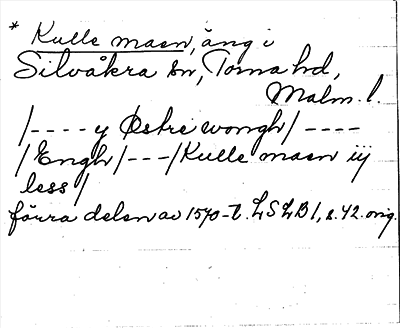 * Kulle maen, äng i
Silvåkra sn, Torna hd,
Malm. l.
/---- y Østre wongh/ ----
/Engh/---/Kulle maen iij
less/
förra delen av 1570-t. LSLB 1, s. 42. orig.